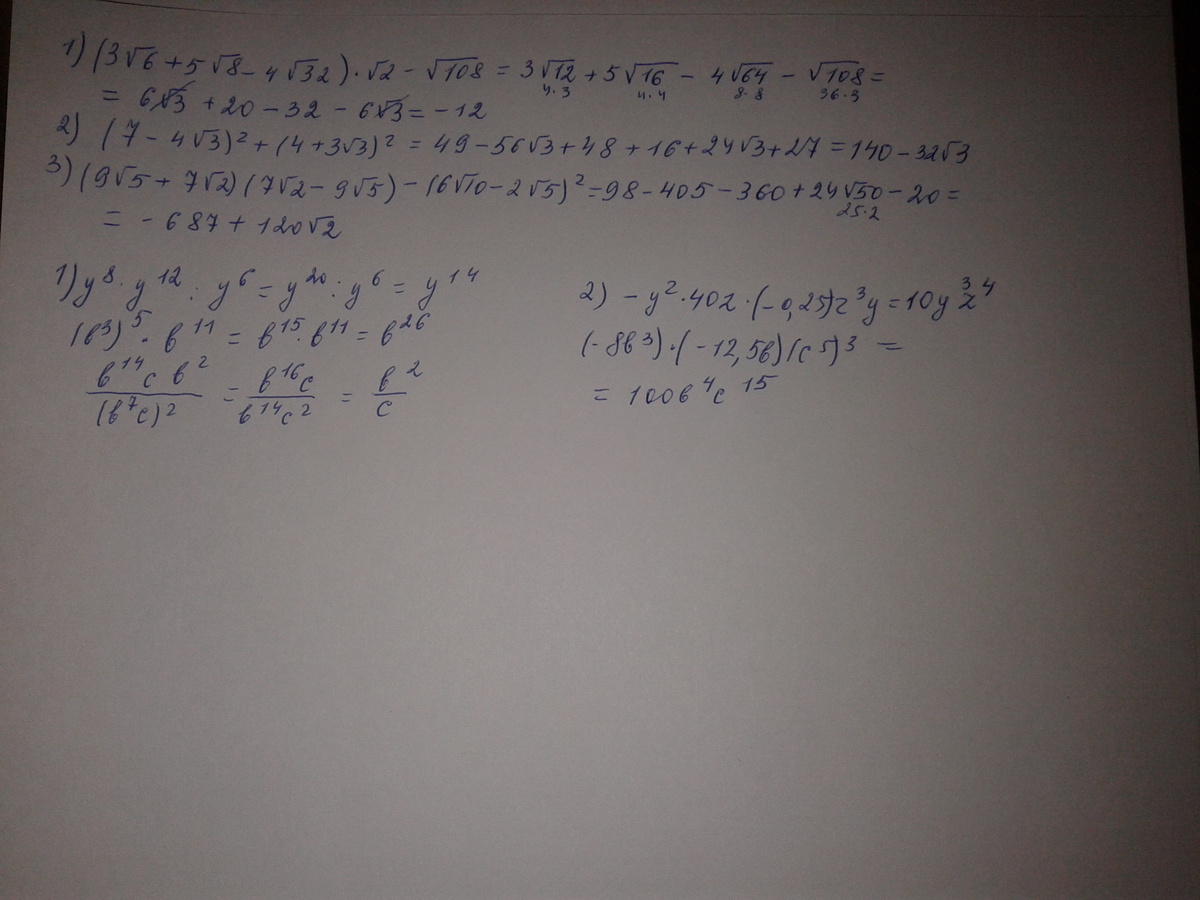 1) (3√6 + 5√8 - 4√32) · √2 - √108 = 3√12 + 5√16 - 4√64 - √108 =
4·3 4·4 8·8 36·3
= 6√3 + 20 - 32 - 6√3 = -12
2) (7 - 4√3)² + (4 + 3√3)² = 49 - 56√3 + 48 + 16 + 24√3 + 27 = 140 - 32√3
3) (9√5 + 7√2) (7√2 - 9√5) - (6√10 - 2√5)² = 98 - 405 - 360 + 24√50 - 20 =
25·2
= - 687 + 120√2
1) y⁸ · y¹² : y⁶ = y²⁰ : y⁶ = y¹⁴
(b³)⁵ · b¹¹ = b¹⁵ · b¹¹ = b²⁶
b¹⁴c b² / (b⁷c)² = b¹⁶c / b¹⁴c² = b² / c
2) - y² · 40z · (-0,25)z³y = 10y³z⁴
(-8b³) · (-12,5b) (c⁵)³ =
= 100b⁴c¹⁵